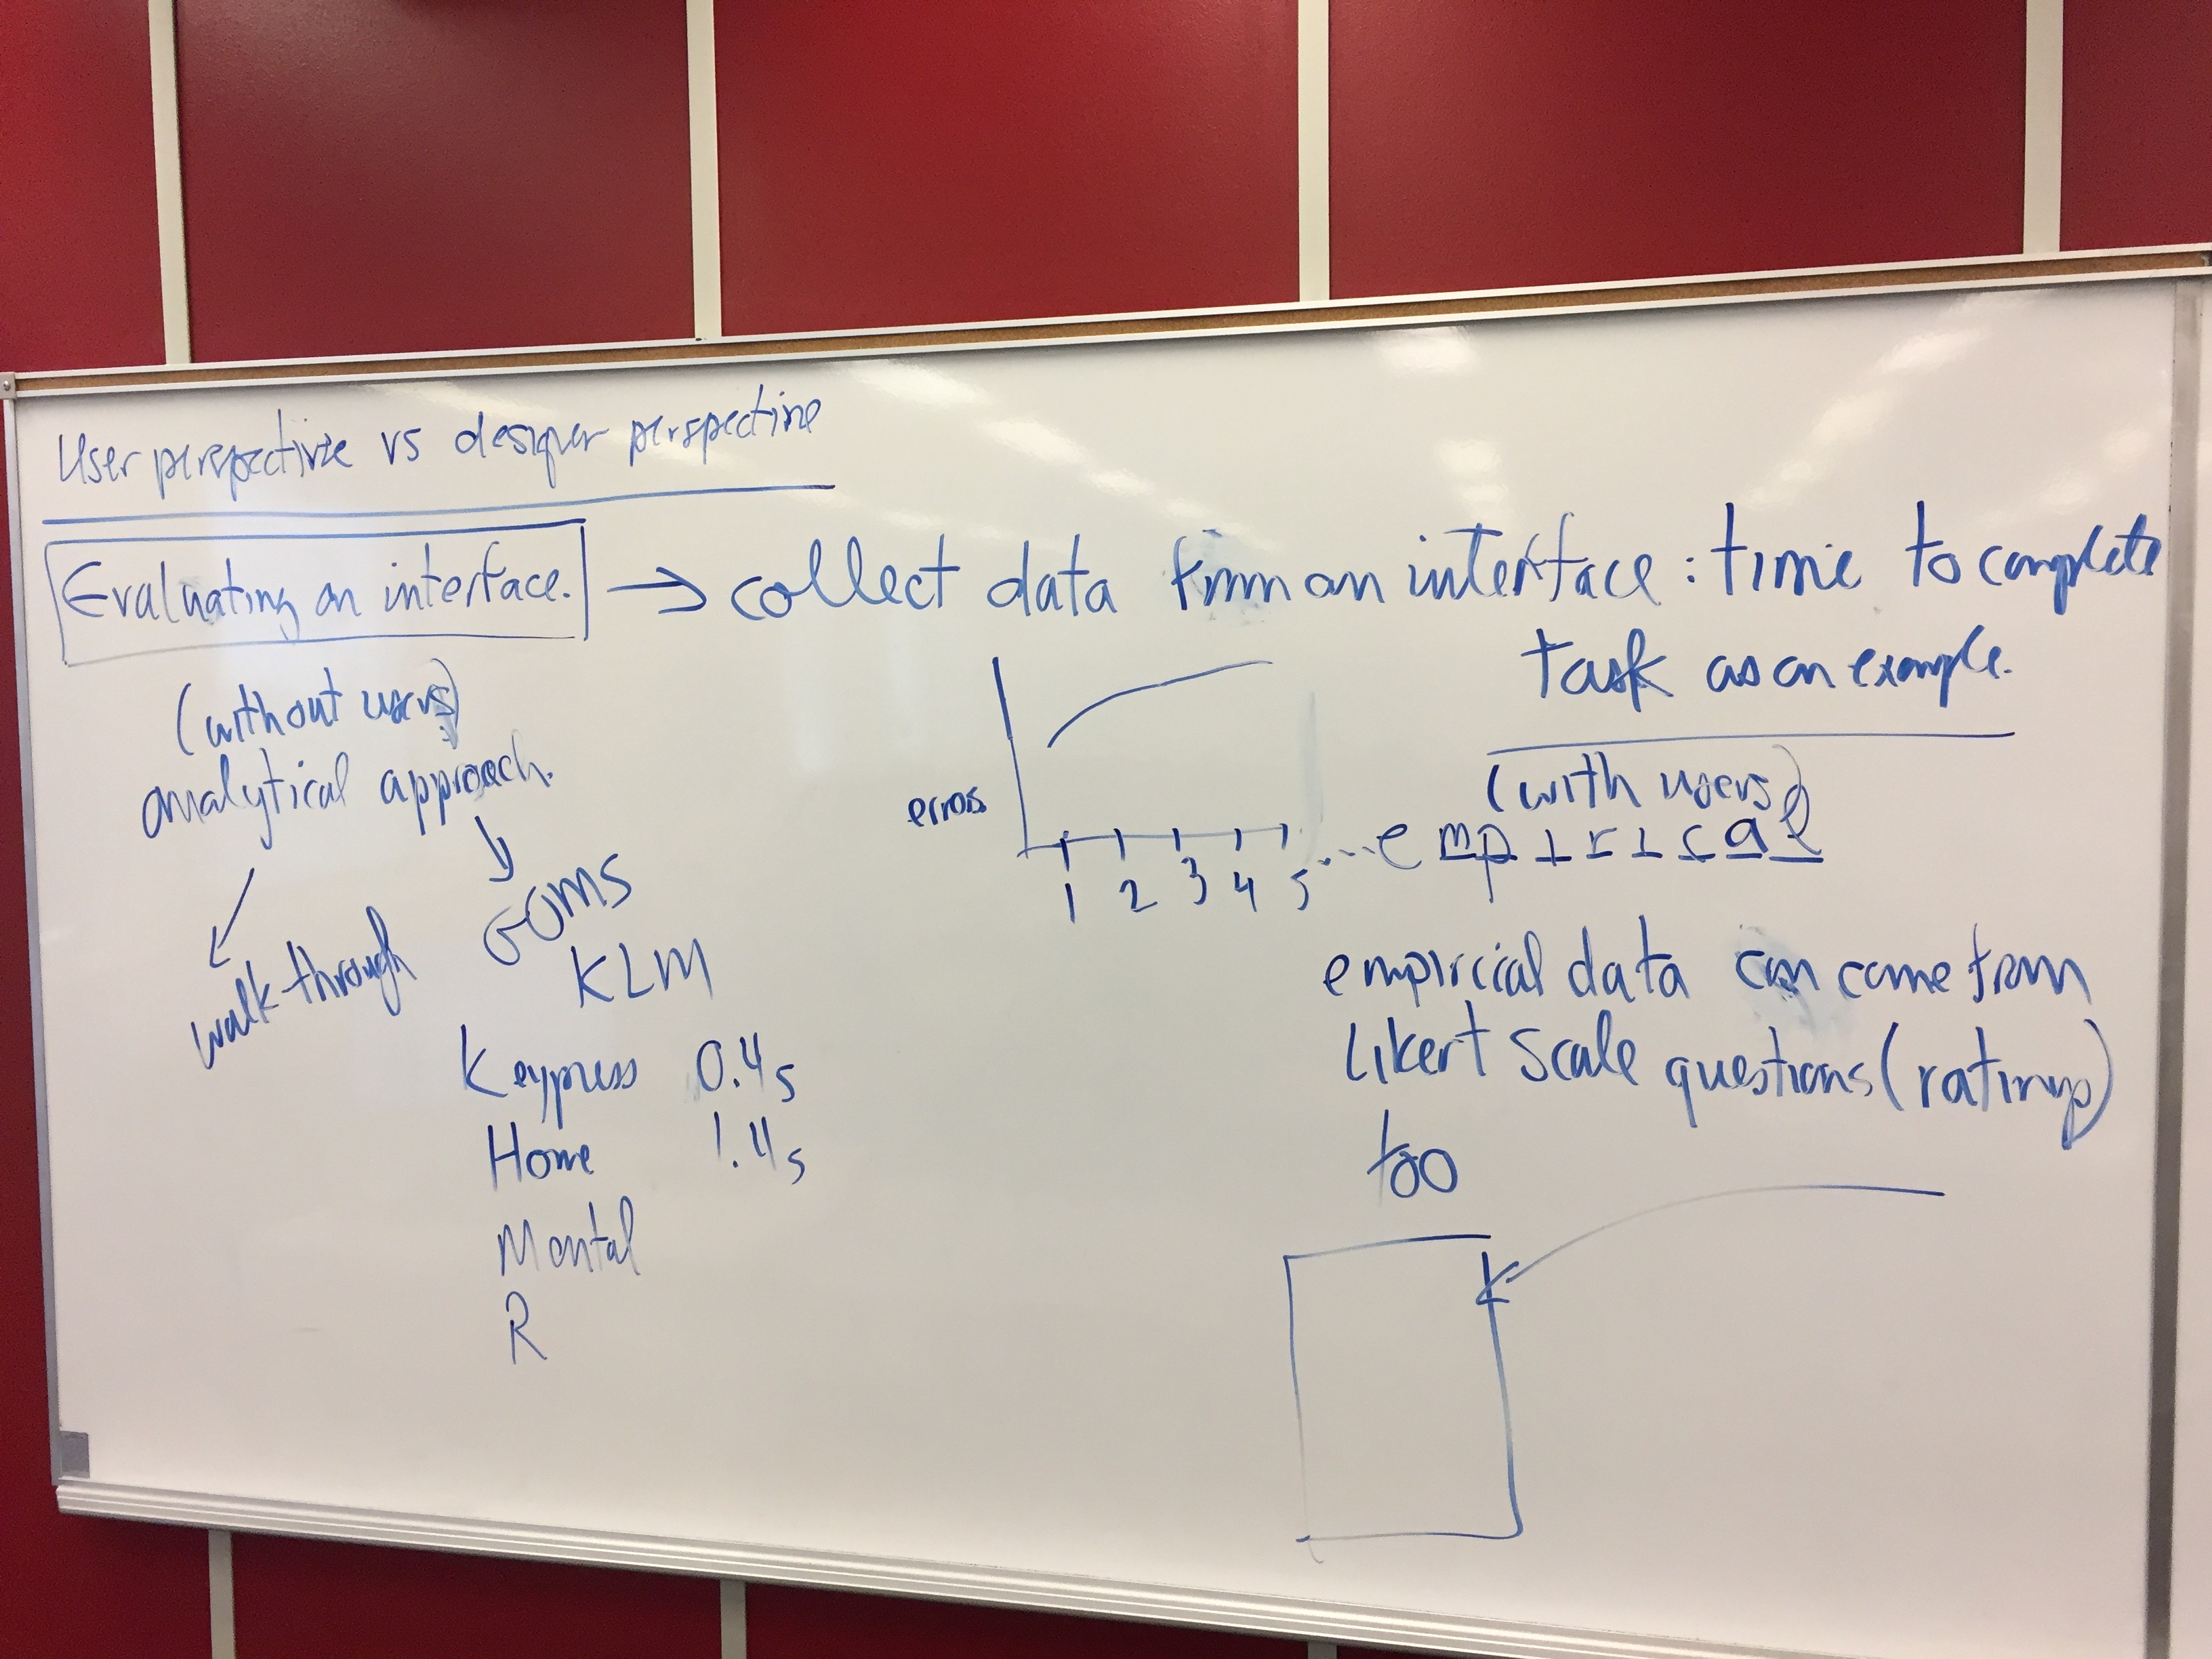 User perspective vs designer perspective
Evaluating an interface. → collect data from an interface : time to complete
task as an example.
(without users)
analytical approach.
walk-through
GOMS
KLM
Keypress 0.4s
Home 1.4s
Mental
R
errors
1 2 3 4 5 ...
(with users)
empirical
empircial data can come from
Likert scale questions (ratings)
too